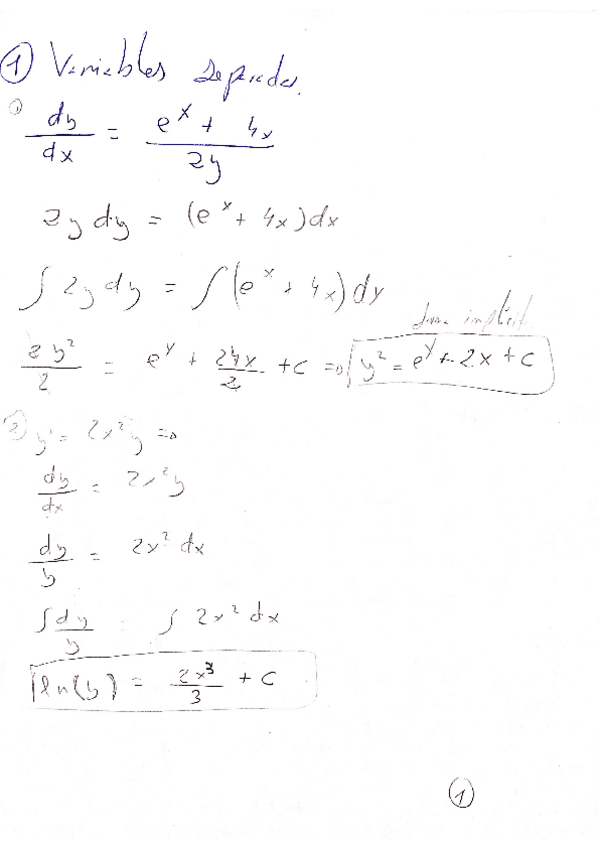 ① Variables separadas.
① dy/dx = (e^x + 4x)/2y
2y dy = (e^x + 4x)dx
∫ 2y dy = ∫(e^x + 4x)dy
forma implícita
2y²/2 = e^y + 24x/2 + c ⇒ y² = e^y + 2x + c
② y' = 2x²y ⇒
dy/dx = 2x²y
dy/y = 2x² dx
∫dy/y = ∫ 2x² dx
ln(y) = 2x³/3 + c
①